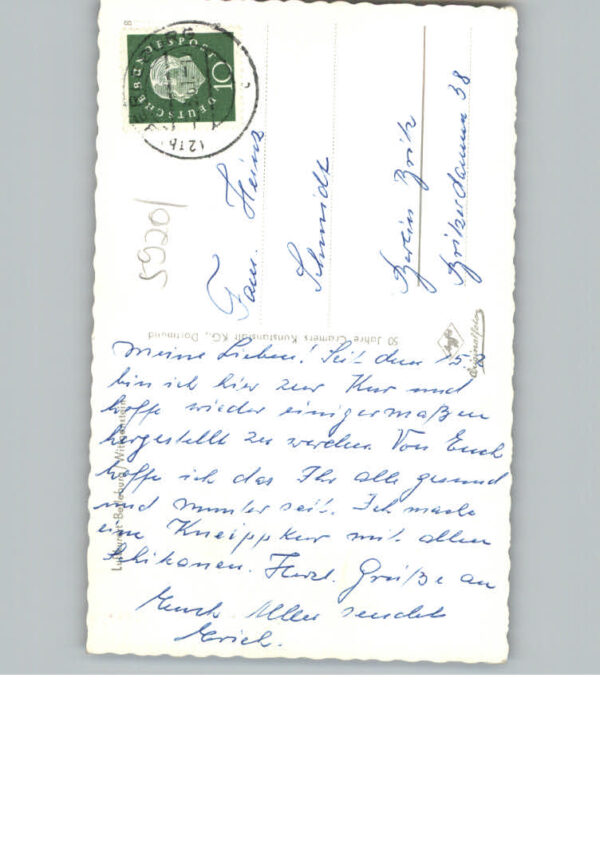 Meine Lieben! Seit dem 15.8.
bin ich hier zur Kur und
hoffe wieder einigermaßen
hergestellt zu werden. Von Euch
hoffe ich das Ihr alle gesund
und munter seit. Ich mache
eine Kneippkur mit allen
Schikanen. Herzl. Grüße an
Euch Allen sendet
Erich.
Fam. Heinz
Schmidt
Berlin Britz
Britzerdamm 38
5920/
DEUTSCHE BUNDESPOST
10
50 Jahre Cramers Kunstanstalt KG., Dortmund
Luftkurort Berleburg/Wittgenstein
Agfa
Originalfoto